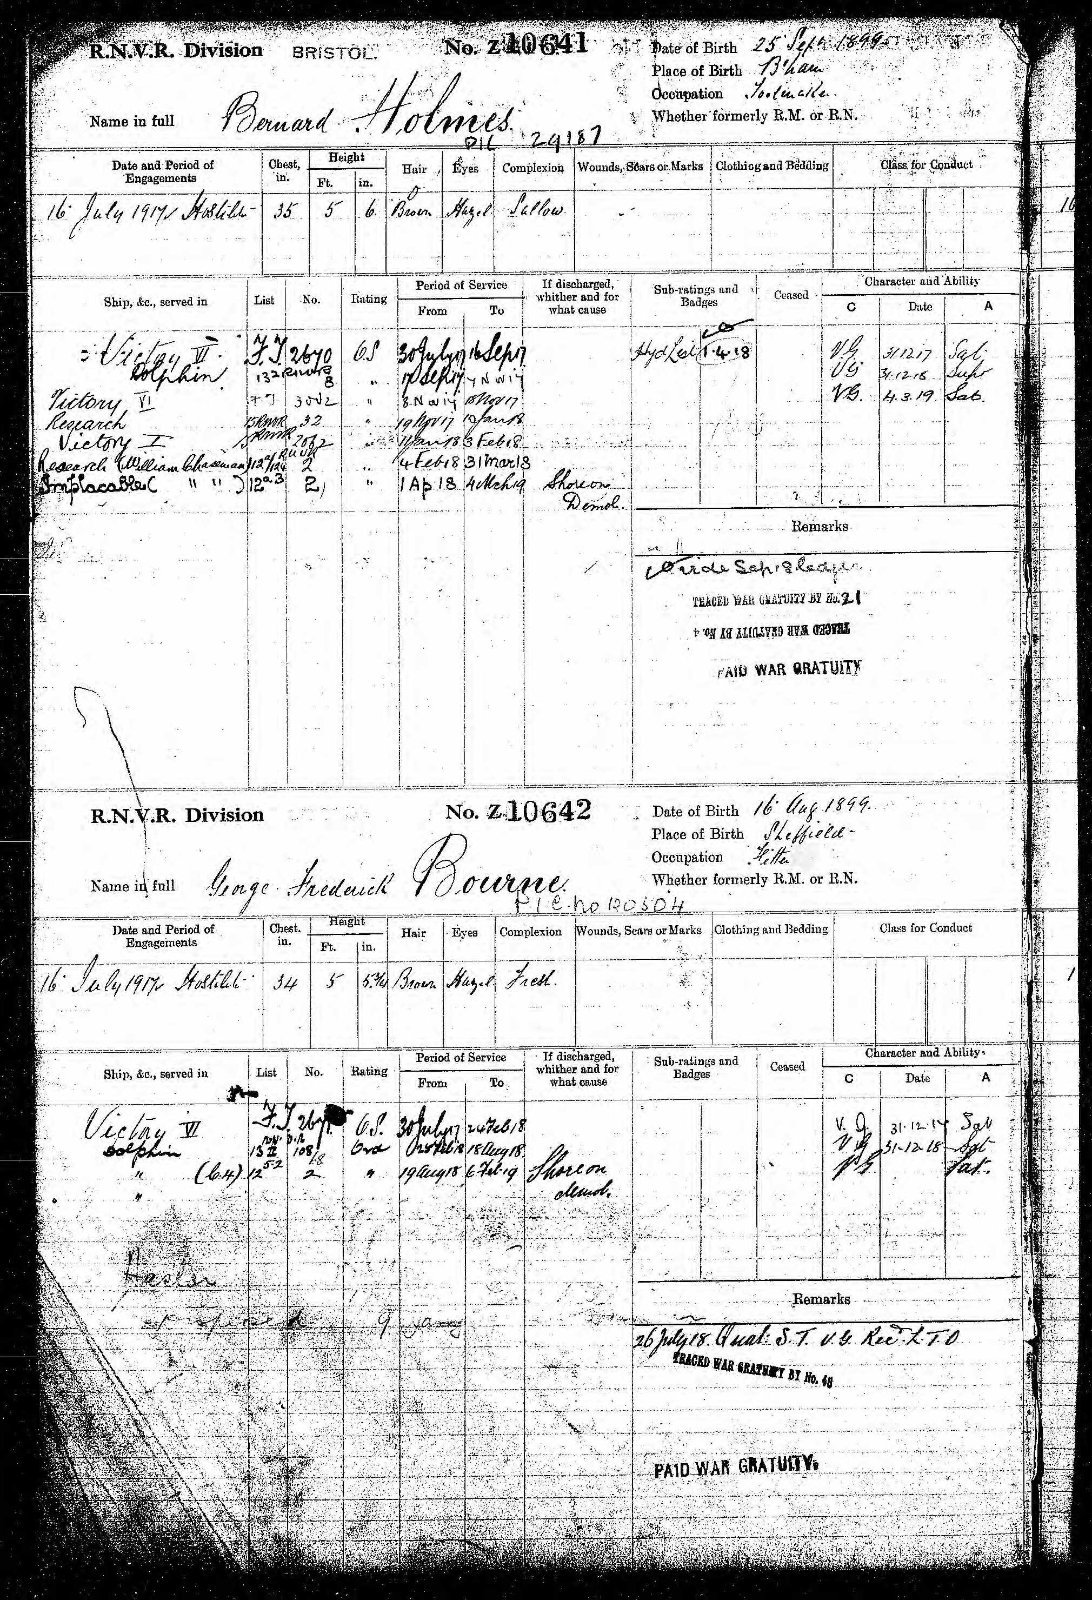 R.N.V.R. Division BRISTOL. No. Z 10641 Date of Birth 25 Sept 1899
Place of Birth B'ham
Occupation Toolmaker
Name in full Bernard Holmes. Whether formerly R.M. or R.N.
29187
Date and Period of Engagements Chest, in. Height Ft. in. Hair Eyes Complexion Wounds, Scars or Marks Clothing and Bedding Class for Conduct
16 July 1917 Hostilities 35 5 6 Brown Hazel Sallow
Ship, &c., served in List No. Rating Period of Service From To If discharged, whither and for what cause Sub-ratings and Badges Ceased Character and Ability C Date A
Victory VI F.J 2670 OS 30 July 17 16 Sep 17 Hyd List 1.4.18 VG 31.12.17 Sat.
Dolphin " 17 Sep 17 7 Nov 17 VG 31.12.18 Supr
Victory VI 3002 " 8 Nov 17 18 Nov 17 VG. 4.3.19 Sat.
Research 32 " 19 Nov 17 10 Jan 18
Victory I 2062 " 11 Jan 18 3 Feb 18
Research (William Chasman) 2 " 4 Feb 18 31 Mar 18
Implacable ( " " ) 2 " 1 Ap 18 4 Mch 19 Shore on
Demob.
Remarks
TRACED WAR GRATUITY BY No. 21
TRACED WAR GRATUITY BY No. 4
PAID WAR GRATUITY
R.N.V.R. Division No. Z 10642 Date of Birth 16 Aug 1899.
Place of Birth Sheffield
Occupation Fitter
Name in full George Frederick Bourne. Whether formerly R.M. or R.N.
P I C. no 120504
Date and Period of Engagements Chest. in. Height Ft. in. Hair Eyes Complexion Wounds, Scars or Marks Clothing and Bedding Class for Conduct
16 July 1917 Hostilities 34 5 5¾ Brown Hazel Fresh.
Ship, &c., served in List No. Rating Period of Service From To If discharged, whither and for what cause Sub-ratings and Badges Ceased Character and Ability C Date A
Victory VI F.J. 2671 OS. 30 July 17 24 Feb 18 V.G. 31.12.17 Sat
Dolphin 108 Ord 25 Feb 18 18 Aug 18 VG 31-12-18 Sat
" (C.4) 12 2 " 19 Aug 18 6 Feb 19 Shore on VG Sat.
" demob.
Haslar
Remarks
26 July 18. Qual: S.T. V.G. Recd L T O
TRACED WAR GRATUITY BY No. 48
PAID WAR GRATUITY.